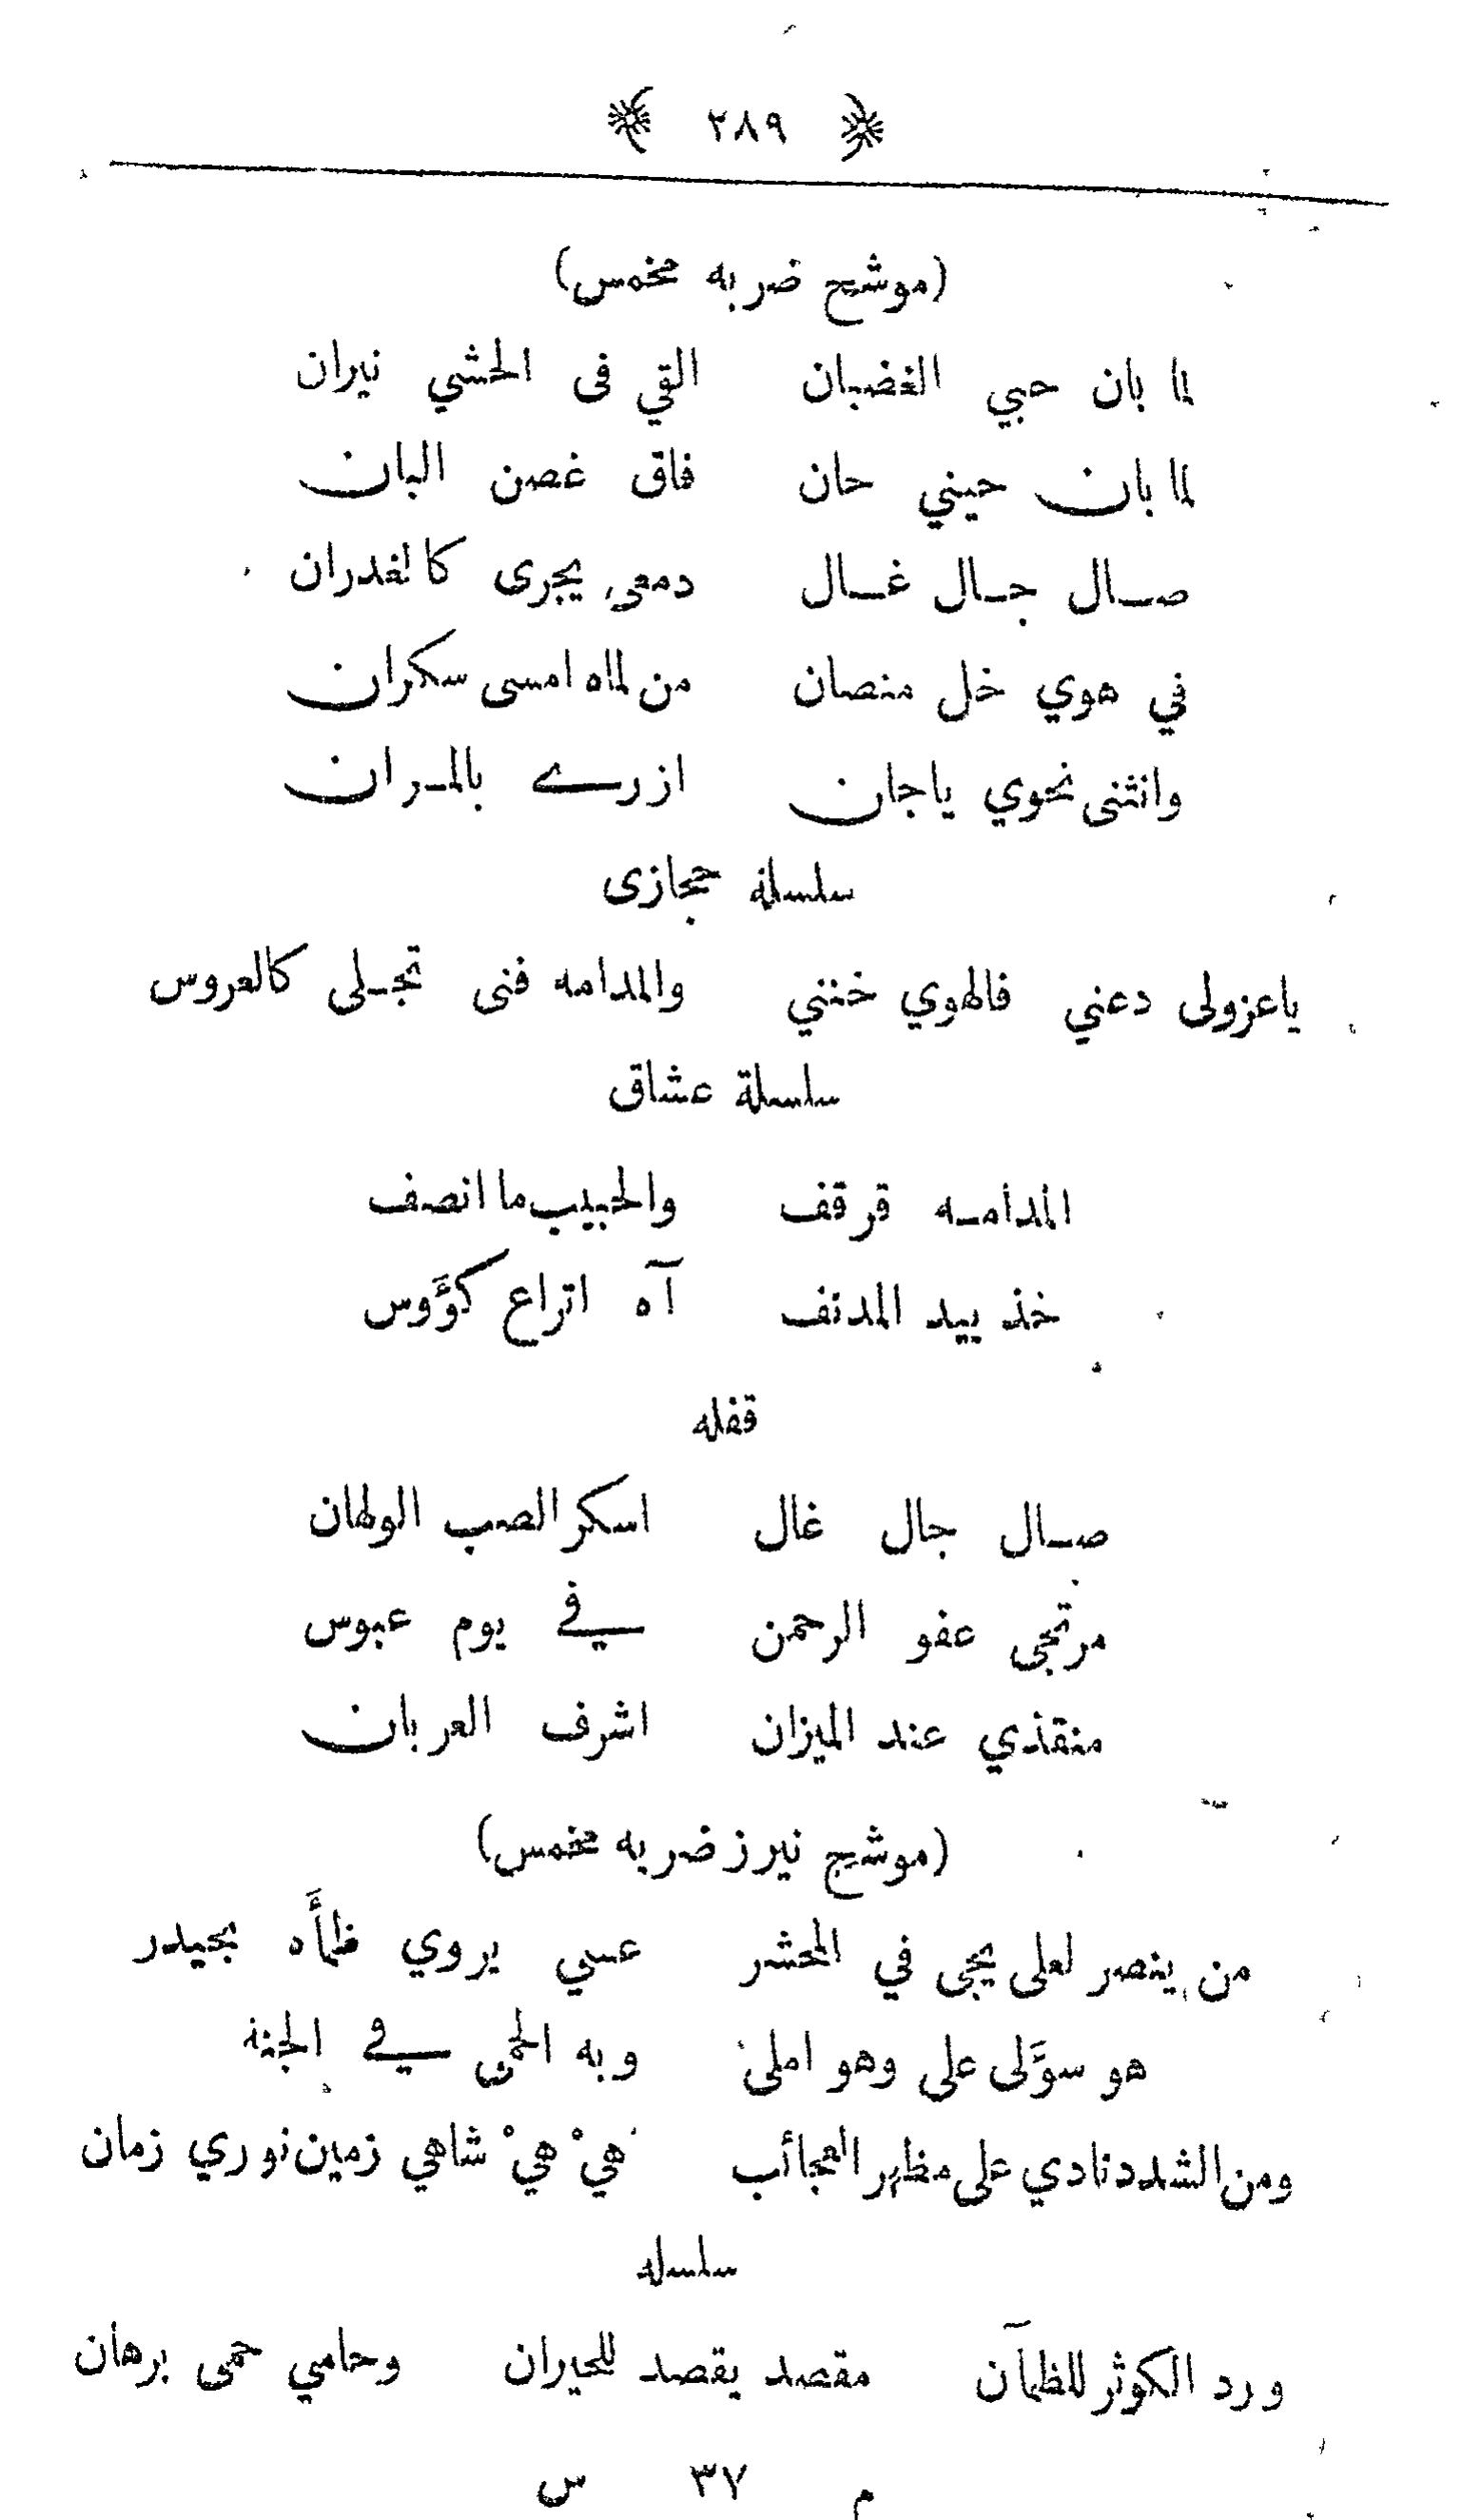 ٢٨٩
(موشح ضربه مخمس)
لما بان حبي الغضبان القي فى الحشي نيران
لما بان حيني حان فاق غصن البان
صال جال غال دمعى يجرى كالغدران
في هوي خل منصان من لماه امسى سكران
وانثنى نحوي ياجان ازرے بالمران
سلسلة حجازى
ياعزولى دعني فالهوي خنني والمدامه فنى تجلى كالعروس
سلسلة عشاق
المدامه قرقف والحبيب ما انصف
خذ بيد المدنف آه اتراع كؤَوس
قفله
صال جال غال اسكر الصب الولهان
مرتجى عفو الرحمن في يوم عبوس
منقذي عند الميزان اشرف العربان
(موشح نيرز ضربه مخمس)
من ينصر لعلى يجى في المحشر عسي يروي ظمأَه بحيدر
هو سؤَلى على وهو املى وبه الحمى في الجنة
ومن الشدد نادي على مظهر العجائب هيْ هيْ شاهي زمين نوري زمان
سلسله
ورد الكوثر للظمآن مقصد يقصد للحيران وحامي حمى برهان
م ٣٧ س